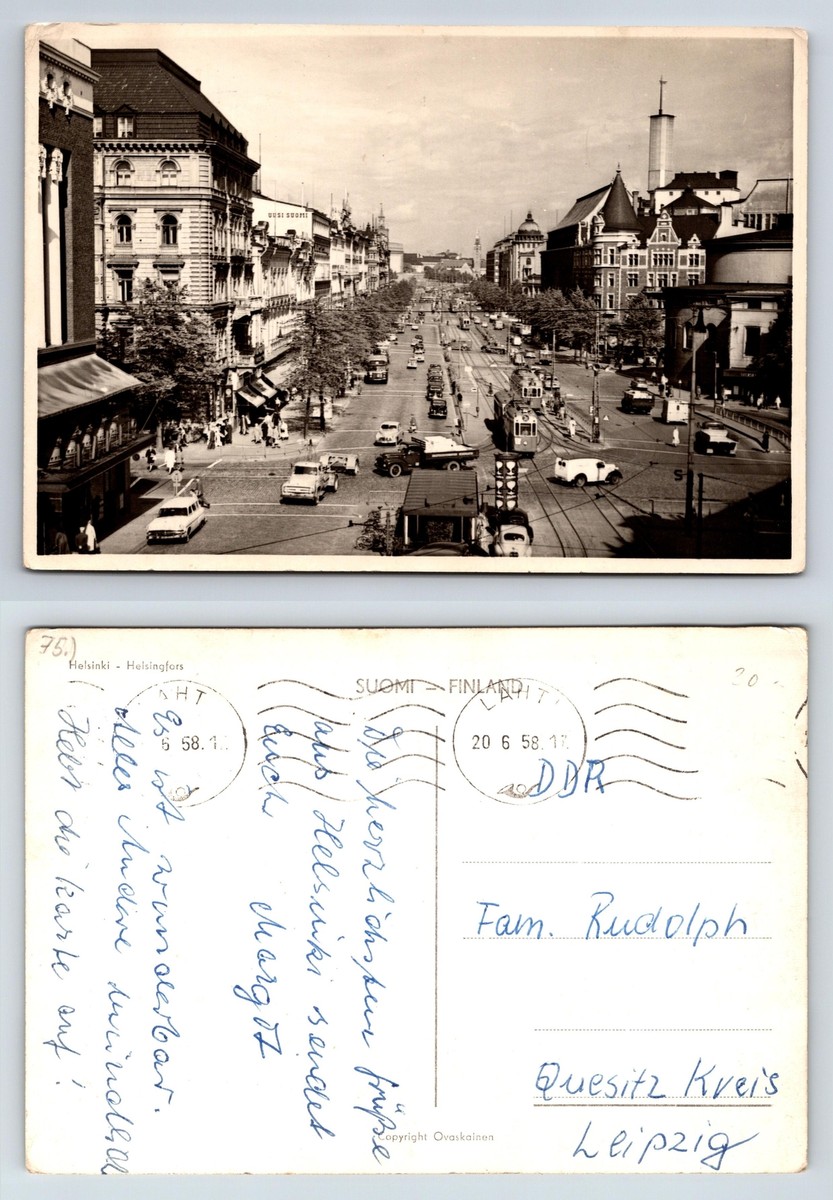 UUSI SUOMI
75.)
Helsinki - Helsingfors
SUOMI — FINLAND
20
AHT
6 58.1
LAHTI
20 6 58.17
Die herzlichsten Grüße
aus Helsinki sendet
Euch
Margot
Es ist wunderbar.
Alles Andere mündlich
Hebt die Karte auf!
DDR
Fam. Rudolph
Quesitz Kreis
Leipzig
Copyright Ovaskainen